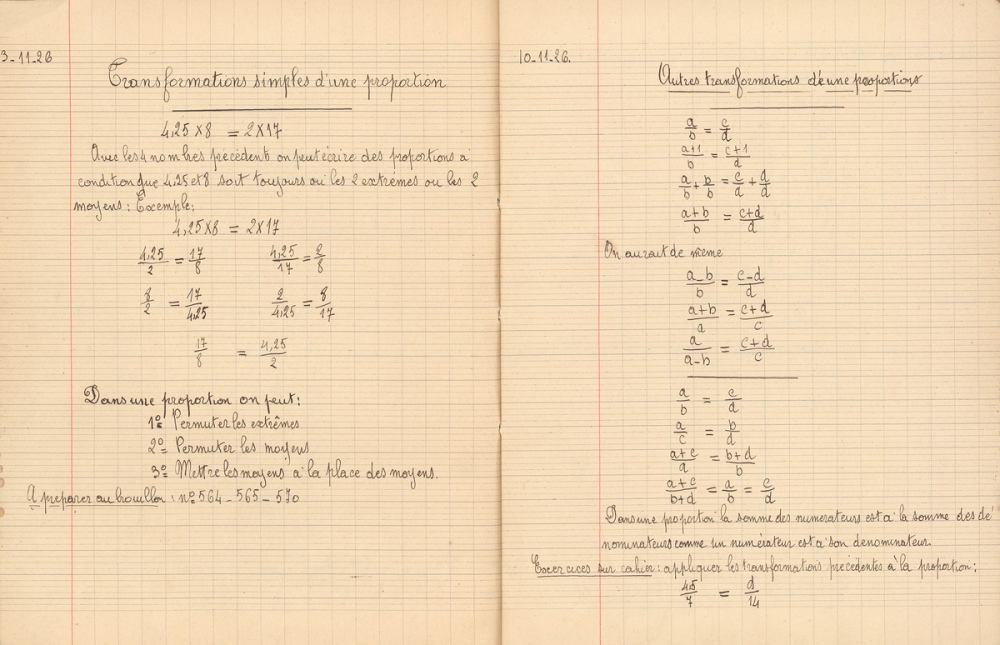 3-11-26
Transformations simples d'une proportion
4,25 x 8 = 2 x 17
Avec les 4 nombres précédent on peut écrire des proportions à
condition que 4,25 et 8 soit toujours ou les 2 extrêmes ou les 2
moyens : Exemple :
4,25 x 8 = 2 x 17
4,25/2 = 17/8 4,25/17 = 2/8
8/2 = 17/4,25 2/4,25 = 8/17
17/8 = 4,25/2
Dans une proportion on peut :
1º Permuter les extrêmes
2º Permuter les moyens
3º Mettre les moyens à la place des moyens.
A preparer au brouillon : nº 564 - 565 - 570
10-11-26.
Autres transformations d'une proportions
a/b = c/d
a+1/b = c+1/d
a/b + b/b = c/d + d/d
a+b/b = c+d/d
On aurait de même
a-b/b = c-d/d
a+b/a = c+d/c
a/a-b = c+d/c
a/b = c/d
a/c = b/d
a+c/a = b+d/b
a+c/b+d = a/b = c/d
Dans une proportion la somme des numerateurs est à la somme des dé
nominateurs comme un numérateur est à son denominateur.
Exercices sur cahier : appliquer les transformations precédentes à la proportion :
4,5/7 = d/14